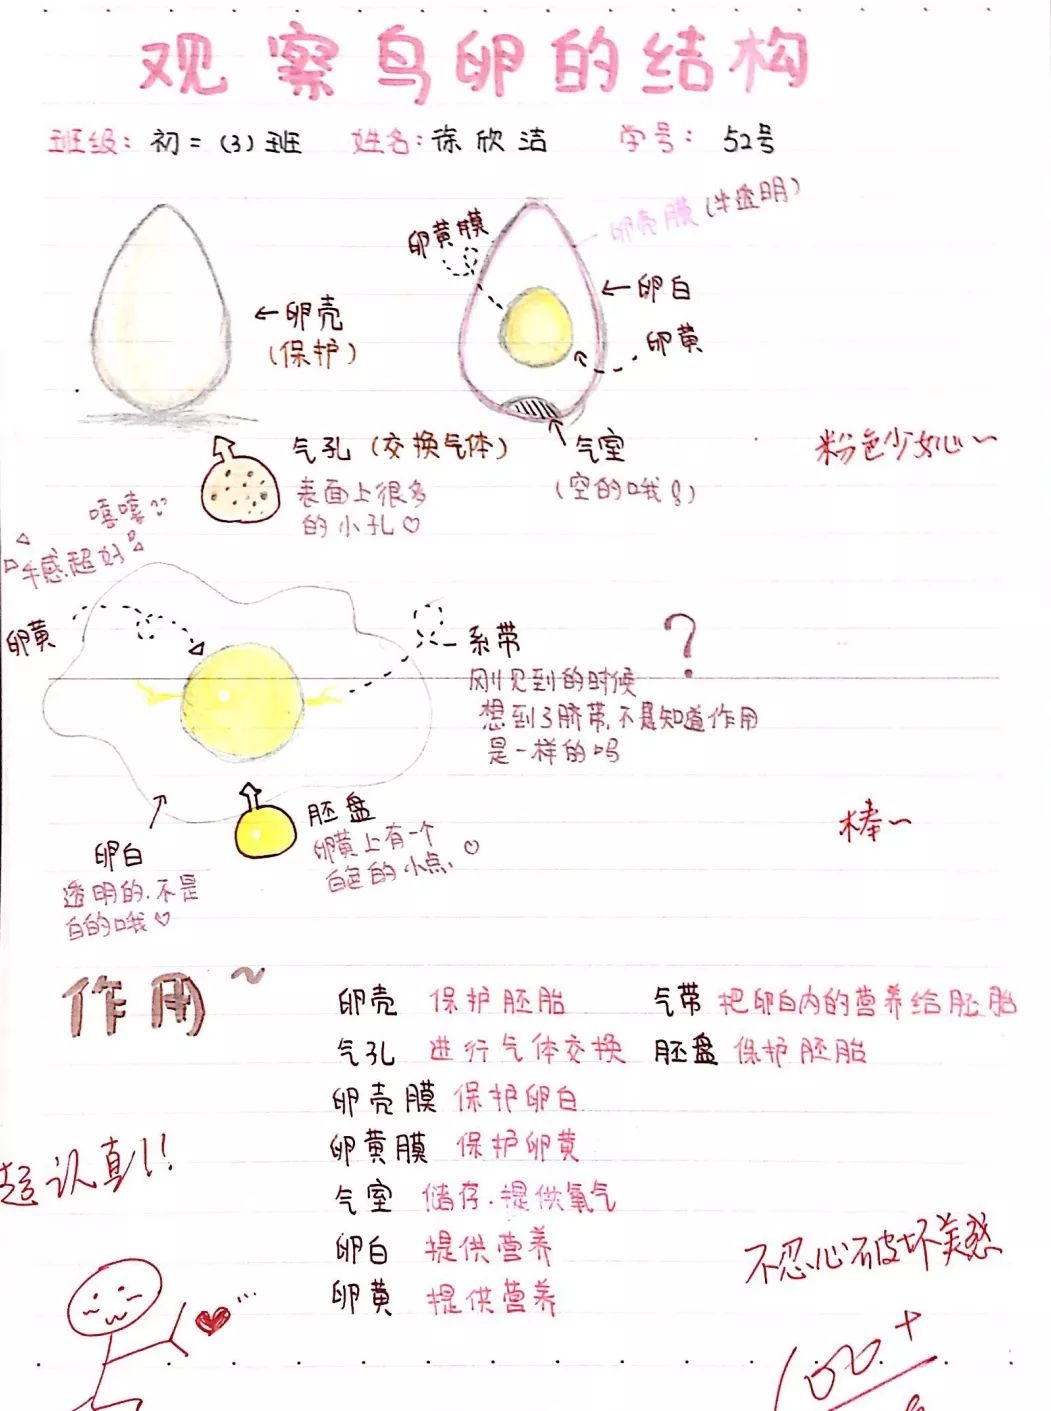 观察鸟卵的结构
班级: 初二(3)班 姓名: 徐欣洁 学号: 52号
卵黄膜
卵壳膜(半透明)
←卵壳
(保护)
←卵白
卵黄
气孔(交换气体)
表面上很多
的小孔♡
气室
(空的哦!)
粉色少女心~
嘻嘻
手感超好
卵黄
系带
刚见到的时候
想到了脐带,不是知道作用
是一样的吗
?
卵白
透明的.不是
白的哦♡
胚盘
卵黄上有一个
白色的小点. ♡
棒~
作用~
卵壳 保护胚胎 气带 把卵白内的营养给胚胎
气孔 进行气体交换 胚盘 保护胚胎
卵壳膜 保护卵白
卵黄膜 保护卵黄
气室 储存.提供氧气
卵白 提供营养
卵黄 提供营养
超认真!!
不忍心破坏美感
100+